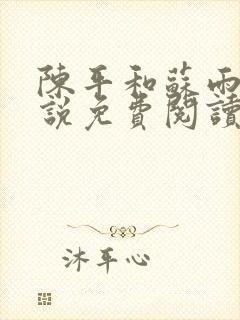 陳平和蘇雨
說免費閱讀
沐平心